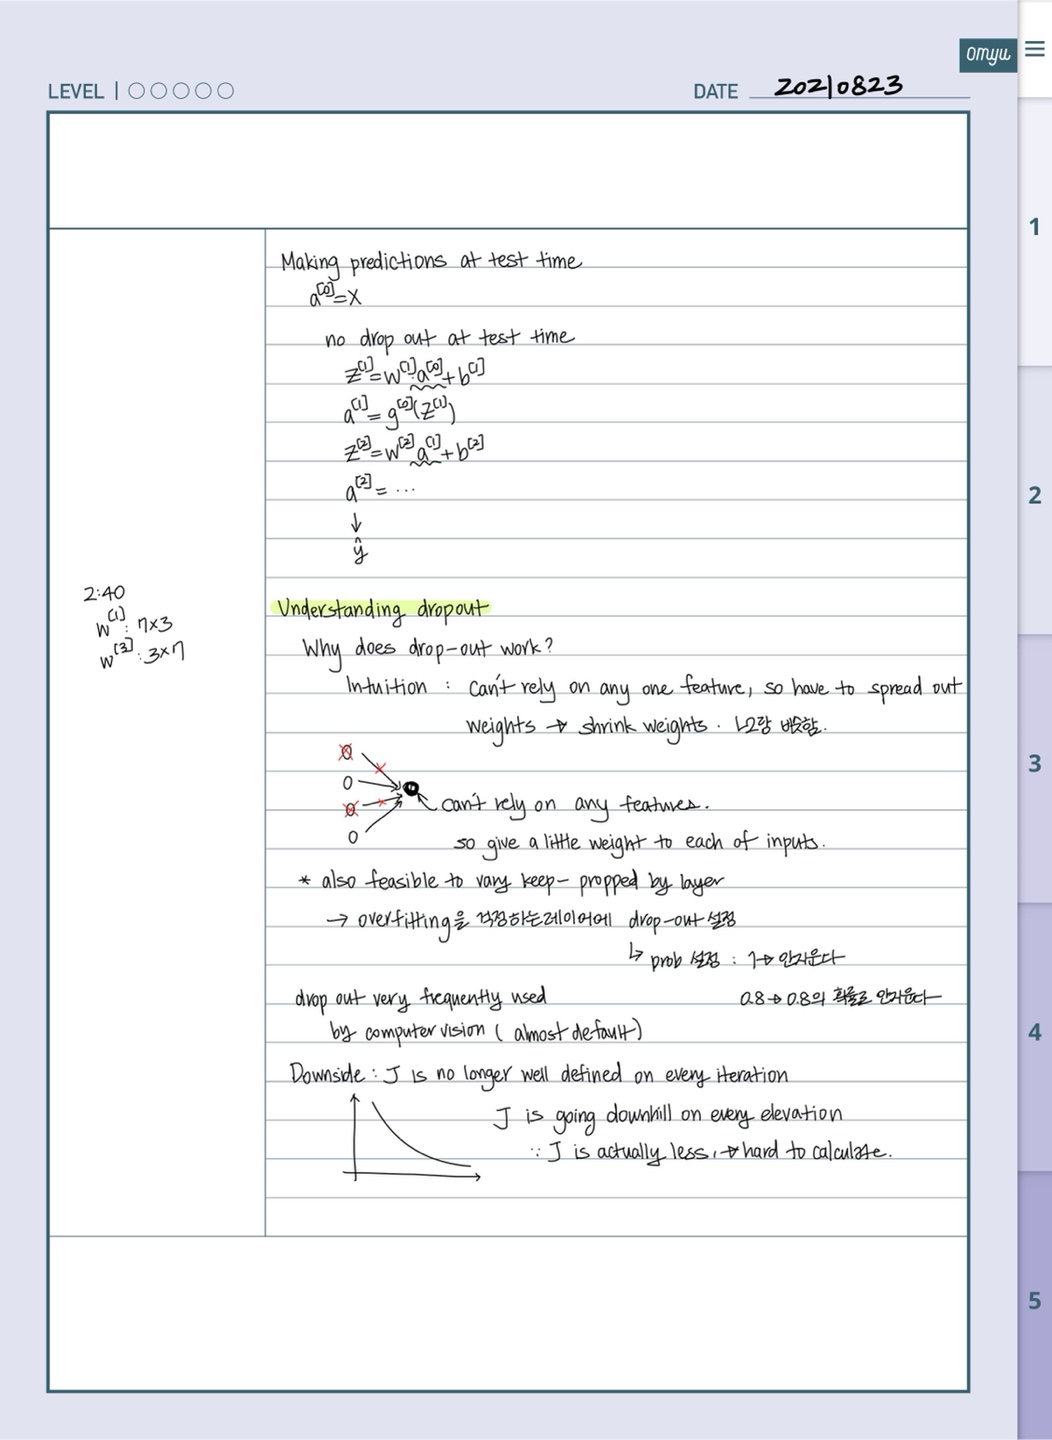 omyu
LEVEL
DATE 20210823
1
2
3
4
5
Making predictions at test time
a^[0]=X
no drop out at test time
z^[1]=w^[1]·a^[0]+b^[1]
a^[1]=g^[0](z^[1])
z^[2]=w^[2]a^[1]+b^[2]
a^[2]=...
↓
ŷ
2:40
w^[1]: 7×3
w^[3]: 3×7
Understanding dropout
Why does drop-out work?
Intuition : can't rely on any one feature, so have to spread out
weights → shrink weights. L2랑 비슷함.
can't rely on any features.
so give a little weight to each of inputs.
* also feasible to vary keep- propped by layer
→ overfitting을 걱정하는레이어에 drop-out 설정
↳ prob 설정 : 1→ 안지운다
0.8→0.8의 확률로 안지운다
drop out very frequently used
by computer vision ( almost default)
Downside : J is no longer well defined on every iteration
J is going downhill on every elevation
∵ J is actually less, → hard to calculate.